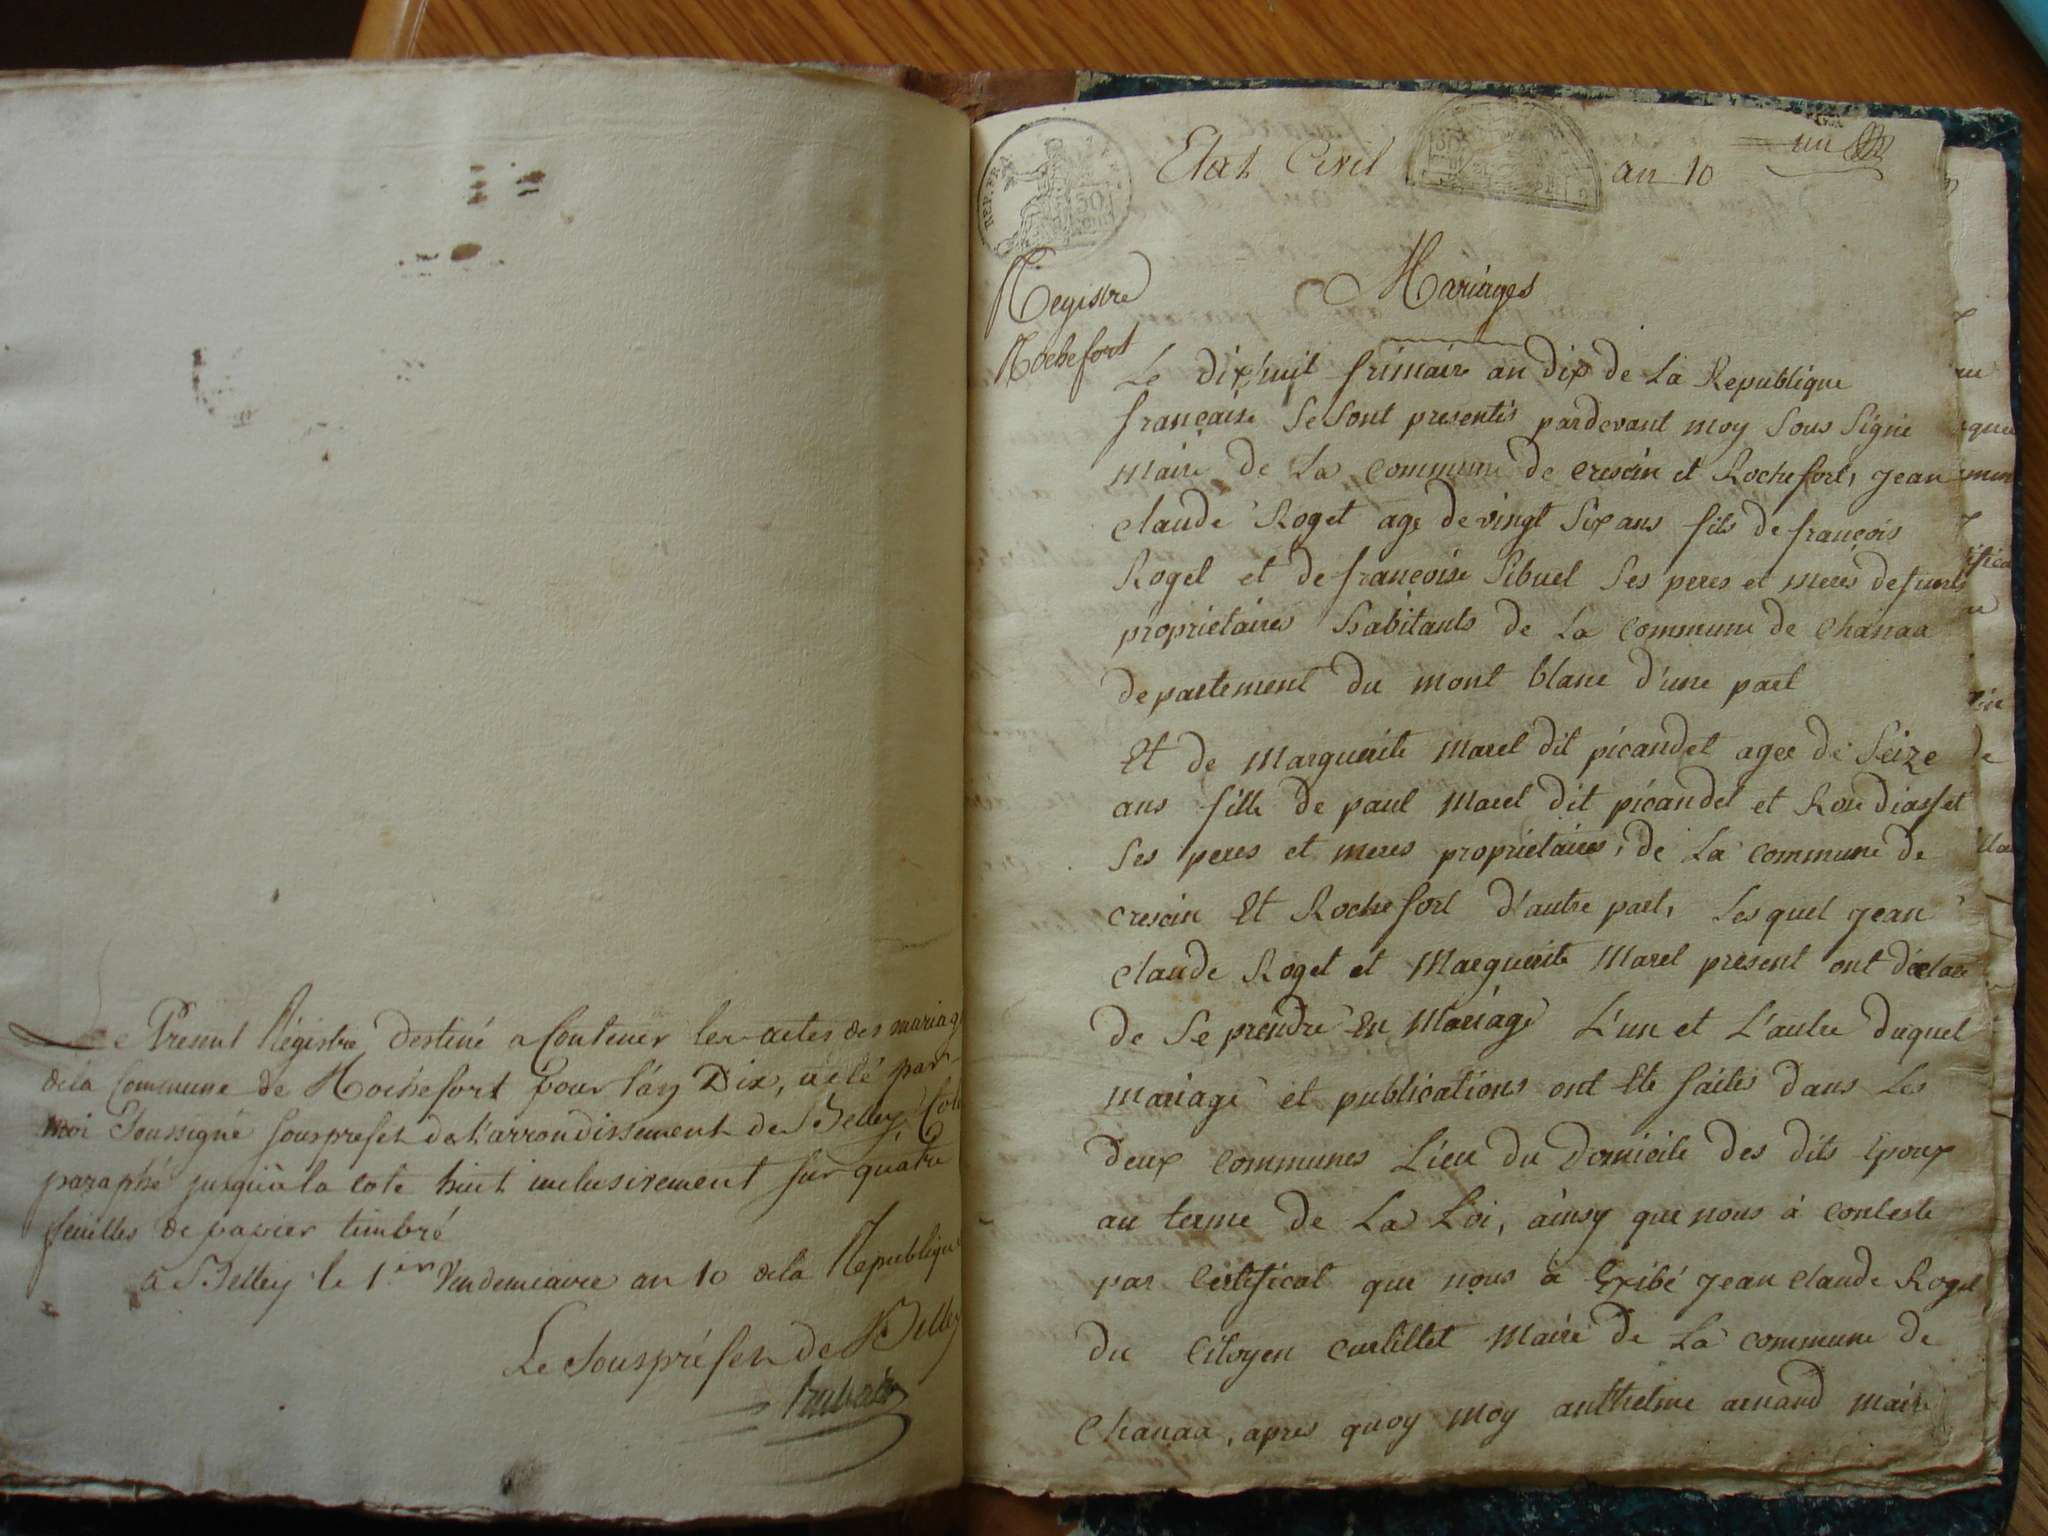 Le Present Régistre destiné a Contenir les actes des mariag
dela Commune de Rochefort pour l'an Dix, a été par
moi Soussigné Sousprefet de l'arrondissement de Belley, Coté
paraphé jusqu'à la cote huit inclusivement sur quatre
feuilles de papier timbré
a Belley le 1.er Vendemiaire an 10 dela Republique
Le Souspréfet de Belley
REP. FRA
50
Etat Civil an 10 un
Registre
Rochefort
Mariages
Le dixhuit frimaire an dix de La Republique
françaisé Se Sont presentés pardevant moy Sous Signé
Maire de La Commune de crescin et Rochefort, jean
claude Roget age de vingt Six ans fils de françois
Roget et de françoise Sibuet Ses peres et meres defunts
proprietaires habitants de La Commune de Chanaa
departement du mont blanc d'une part
Et de Marguerite Maret dit picandet agee de Seize
ans fille de paul Maret dit picandet et Rose diasset
Ses peres et meres proprietaires, de La Commune de
crescin Et Rochefort d'autre part, Lesquel jean
claude Roget et Marguerite Maret présent ont déclaré
de Se prendre En Mariage L'un et L'autre duquel
mariage et publications ont Eté faites dans Les
deux communes Lieu du Domicile des dits Epoux
au terme de La Loi, ainsy que nous à conteste
par Certificat que nous à Exibé jean claude Roget
du Citoyen curtillet Maire de La Commune de
Chanaa, apres quoy moy anthelme arnand maire